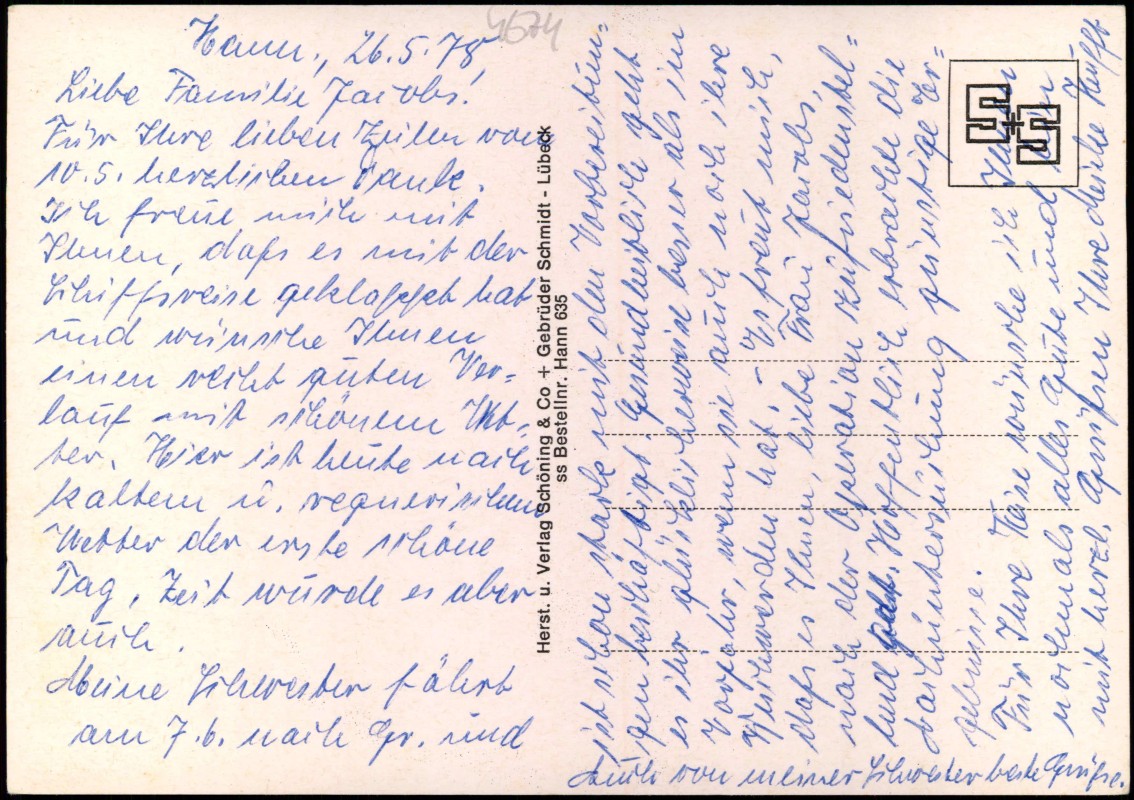 4674
Hann., 26.5.78,
Liebe Familie Jacobs!
Für Ihre lieben Zeilen vom
10.5. herzlichen Dank.
Ich freue mich mit
Ihnen, daß es mit der
Schiffsreise geklappt hat
und wünsche Ihnen
einen recht guten Ver=
lauf mit schönem Wet-
ter. Hier ist heute nach
kaltem u. regnerischem
Wetter der erste schöne
Tag, Zeit würde es aber
auch.
Meine Schwester fährt
am 7.6. nach Gr. und
Herst. u. Verlag Schöning & Co + Gebrüder Schmidt - Lübeck
ss Bestellnr. Hann 635
S+S
ist schon stark mit den Vorbereitun=
gen beschäftigt. Gesundheitlich geht
es ihr glücklicherweise besser als im
Vorjahr, wenn sie auch noch ihre
Beschwerden hat. – Es freut mich,
daß es Ihnen, liebe Frau Jacobs,
nach der Operation zufriedenstel=
lend geht. Hoffentlich erbrachte die
Nachuntersuchung günstige Er=
gebnisse.
Für Ihre Reise wünsche ich Ihnen
nochmals alles Gute und bin
mit herzl. Grüßen Ihre
Auch von meiner Schwester beste Grüße.